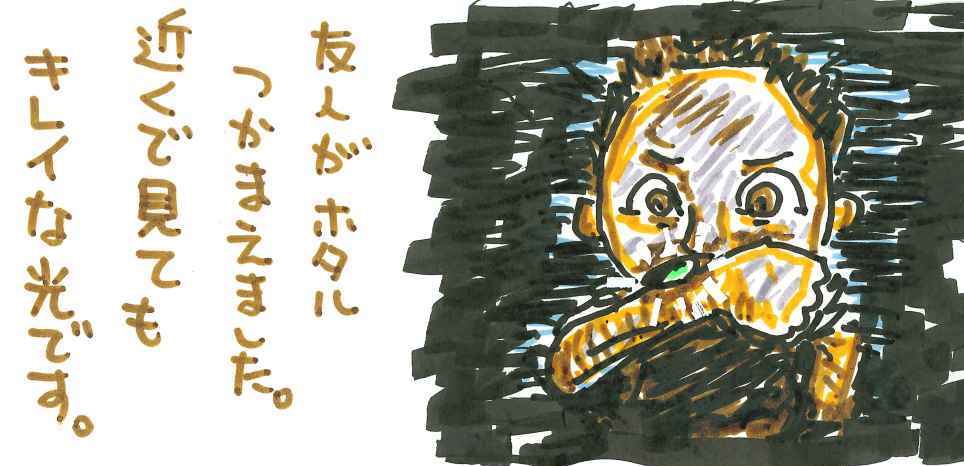 友人がホタル
つかまえました。
近くで見ても
キレイな光です。